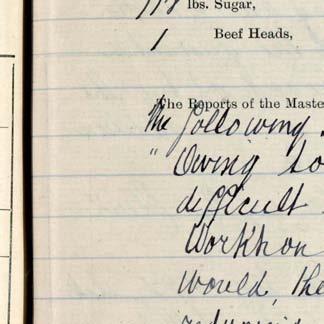 lbs. Sugar,
1 Beef Heads,
The Reports of the Maste
The following
" Owing to
difficult
Workhou
would, the